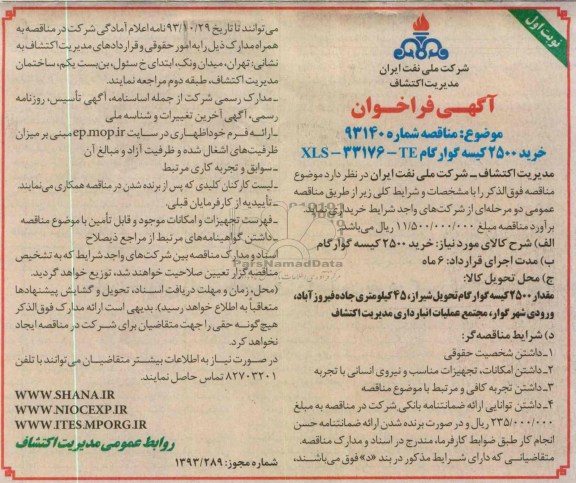 نوبت اول
شرکت ملی نفت ایران
مدیریت اکتشاف
آگهی فراخوان
موضوع: مناقصه شماره ۹۳۱۴۰
خرید ۲۵۰۰ کیسه گوارگام XLS – ۳۳۱۷۶ – TE
مدیریت اکتشاف ـ شرکت ملی نفت ایران در نظر دارد موضوع
مناقصه فوق‌الذکر را با مشخصات و شرایط کلی زیر از طریق مناقصه
عمومی دو مرحله‌ای از شرکت‌های واجد شرایط خریداری نماید.
برآورد مناقصه مبلغ ۱۱/۵۰۰/۰۰۰/۰۰۰ ریال می‌باشد.
الف) شرح کالای مورد نیاز: خرید ۲۵۰۰ کیسه گوارگام
ب) مدت اجرای قرارداد: ۶ ماه
ج) محل تحویل کالا:
مقدار ۲۵۰۰ کیسه گوارگام تحویل شیراز، ۴۵ کیلومتری جاده فیروزآباد،
ورودی شهر کوار، مجتمع عملیات انبارداری مدیریت اکتشاف
د) شرایط مناقصه‌گر:
۱ـ داشتن شخصیت حقوقی
۲ـ داشتن امکانات، تجهیزات مناسب و نیروی انسانی با تجربه
۳ـ داشتن تجربه کافی و مرتبط با موضوع مناقصه
۴ـ داشتن توانایی ارائه ضمانتنامه بانکی شرکت در مناقصه به مبلغ
۲۳۵/۰۰۰/۰۰۰ ریال و در صورت برنده شدن ارائه ضمانتنامه حسن
انجام کار طبق ضوابط کارفرما، مندرج در اسناد و مدارک مناقصه.
متقاضیانی که دارای شرایط مذکور در بند «د» فوق می‌باشند،
می‌توانند تا تاریخ ۹۳/۱۰/۲۹ نامه اعلام آمادگی شرکت در مناقصه به
همراه مدارک ذیل را به امور حقوقی و قراردادهای مدیریت اکتشاف به
نشانی: تهران، میدان ونک، ابتدای خ سئول، بن‌بست یکم، ساختمان
مدیریت اکتشاف، طبقه دوم مراجعه نمایند.
ـ مدارک رسمی شرکت از جمله اساسنامه، آگهی تأسیس، روزنامه
رسمی، آگهی آخرین تغییرات و شناسه ملی
ـ ارائه فرم خوداظهاری در سایت ep.mop.ir مبنی بر میزان
ظرفیت‌های اشغال شده و ظرفیت آزاد و مبالغ آن
ـ سوابق و تجربه کاری مرتبط
ـ لیست کارکنان کلیدی که پس از برنده شدن در مناقصه همکاری می‌نمایند.
ـ تأییدیه از کارفرمایان قبلی.
ـ فهرست تجهیزات و امکانات موجود و قابل تأمین با موضوع مناقصه
ـ داشتن گواهینامه‌های مرتبط از مراجع ذیصلاح
اسناد و مدارک مناقصه بین شرکت‌های واجد شرایط که به تشخیص
مناقصه‌گزار تعیین صلاحیت خواهند شد، توزیع خواهد گردید.
(محل، زمان و مهلت دریافت اسناد، تحویل و گشایش پیشنهادها
متعاقباً به اطلاع خواهد رسید). بدیهی است ارائه مدارک فوق‌الذکر
هیچ‌گونه حقی را جهت متقاضیان برای شرکت در مناقصه ایجاد
نخواهد کرد.
در صورت نیاز به اطلاعات بیشتر متقاضیان می‌توانند با تلفن
۸۲۷۰۳۲۰۱ تماس حاصل نمایند.
WWW.SHANA.IR
WWW.NIOCEXP.IR
WWW.ITES.MPORG.IR
روابط عمومی مدیریت اکتشاف
شماره مجوز: ۱۳۹۳/۲۸۹
ParsNamadData